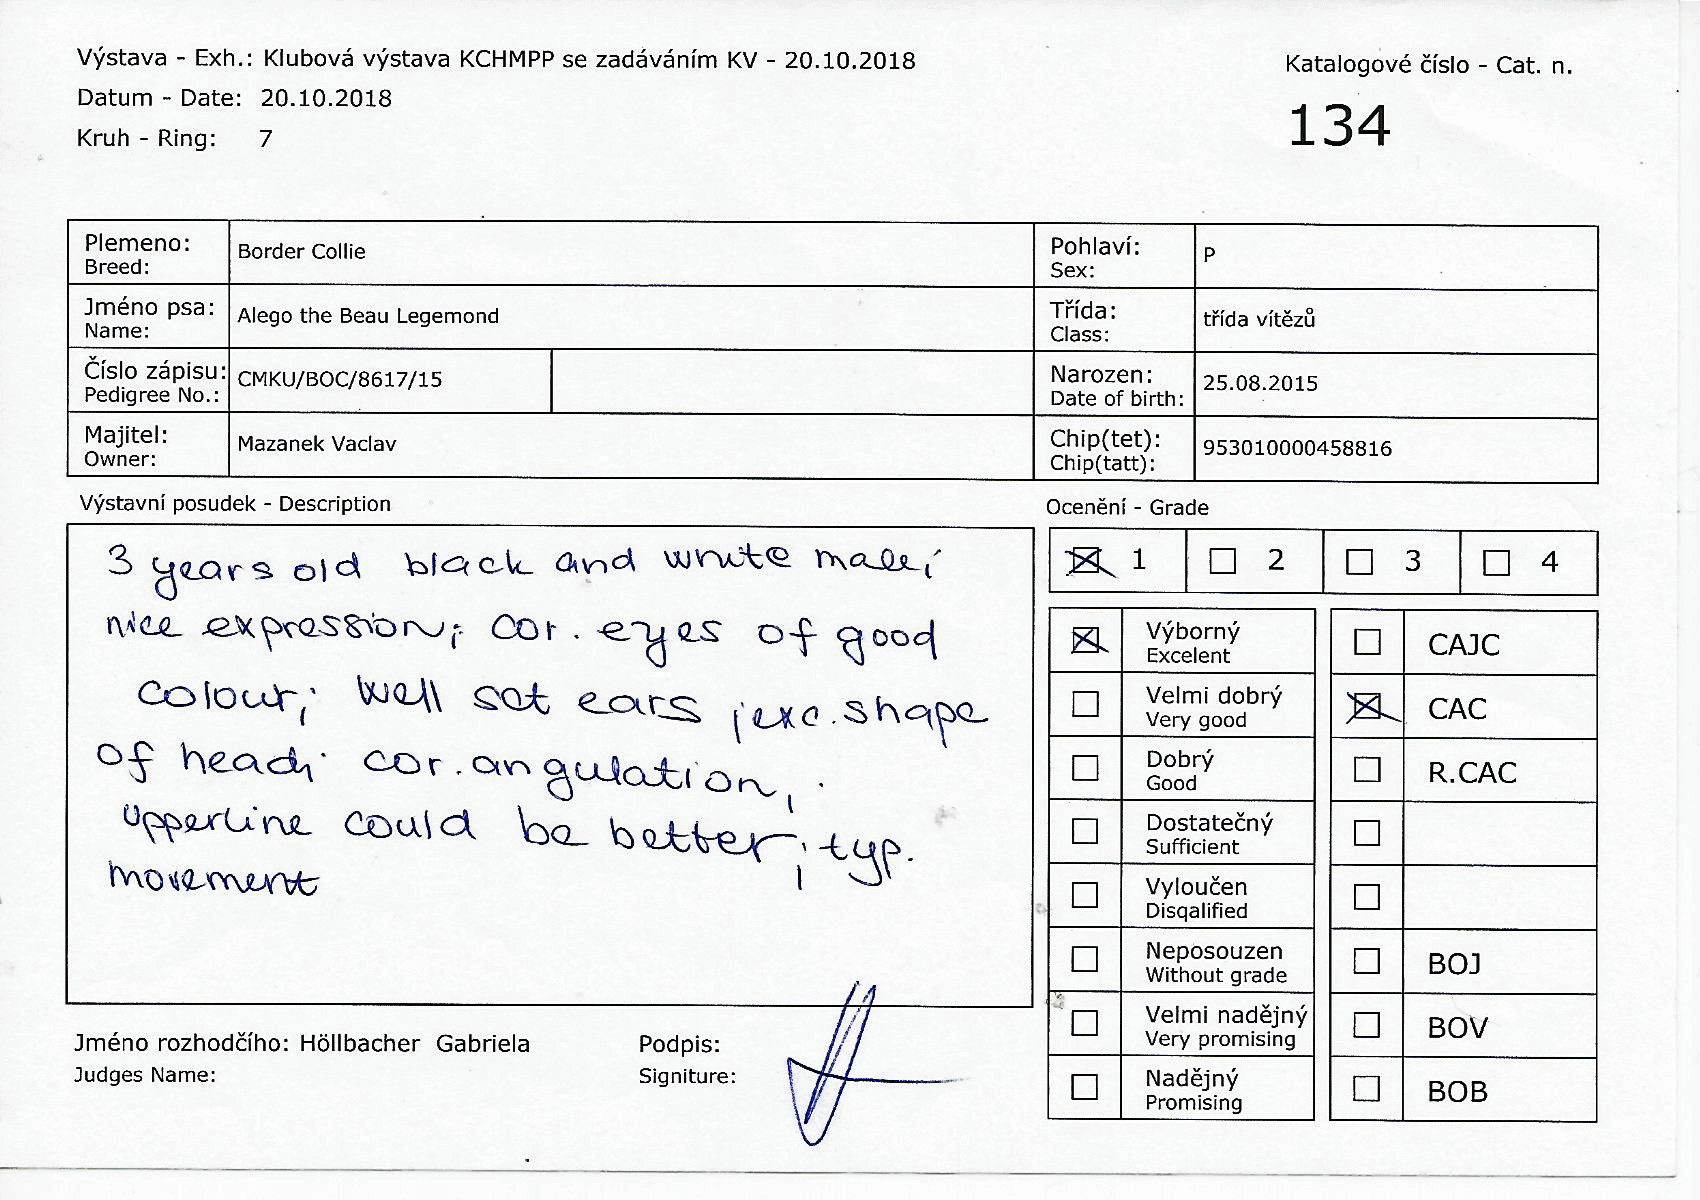 Výstava - Exh.: Klubová výstava KCHMPP se zadáváním KV - 20.10.2018
Datum - Date: 20.10.2018
Kruh - Ring: 7
Katalogové číslo - Cat. n.
134
Plemeno:
Breed:
Border Collie
Pohlaví:
Sex:
P
Jméno psa:
Name:
Alego the Beau Legemond
Třída:
Class:
třída vítězů
Číslo zápisu:
Pedigree No.:
CMKU/BOC/8617/15
Narozen:
Date of birth:
25.08.2015
Majitel:
Owner:
Mazanek Vaclav
Chip(tet):
Chip(tatt):
953010000458816
Výstavní posudek - Description
3 years old black and white male;
nice expression; cor. eyes of good
colour; well set ears ; exc. shape
of head; cor. angulation,
upperline could be better; typ.
movement
Jméno rozhodčího: Höllbacher Gabriela
Judges Name:
Podpis:
Signiture:
Ocenění - Grade
1 2 3 4
Výborný
Excelent
Velmi dobrý
Very good
Dobrý
Good
Dostatečný
Sufficient
Vyloučen
Disqalified
Neposouzen
Without grade
Velmi nadějný
Very promising
Nadějný
Promising
CAJC
CAC
R.CAC
BOJ
BOV
BOB